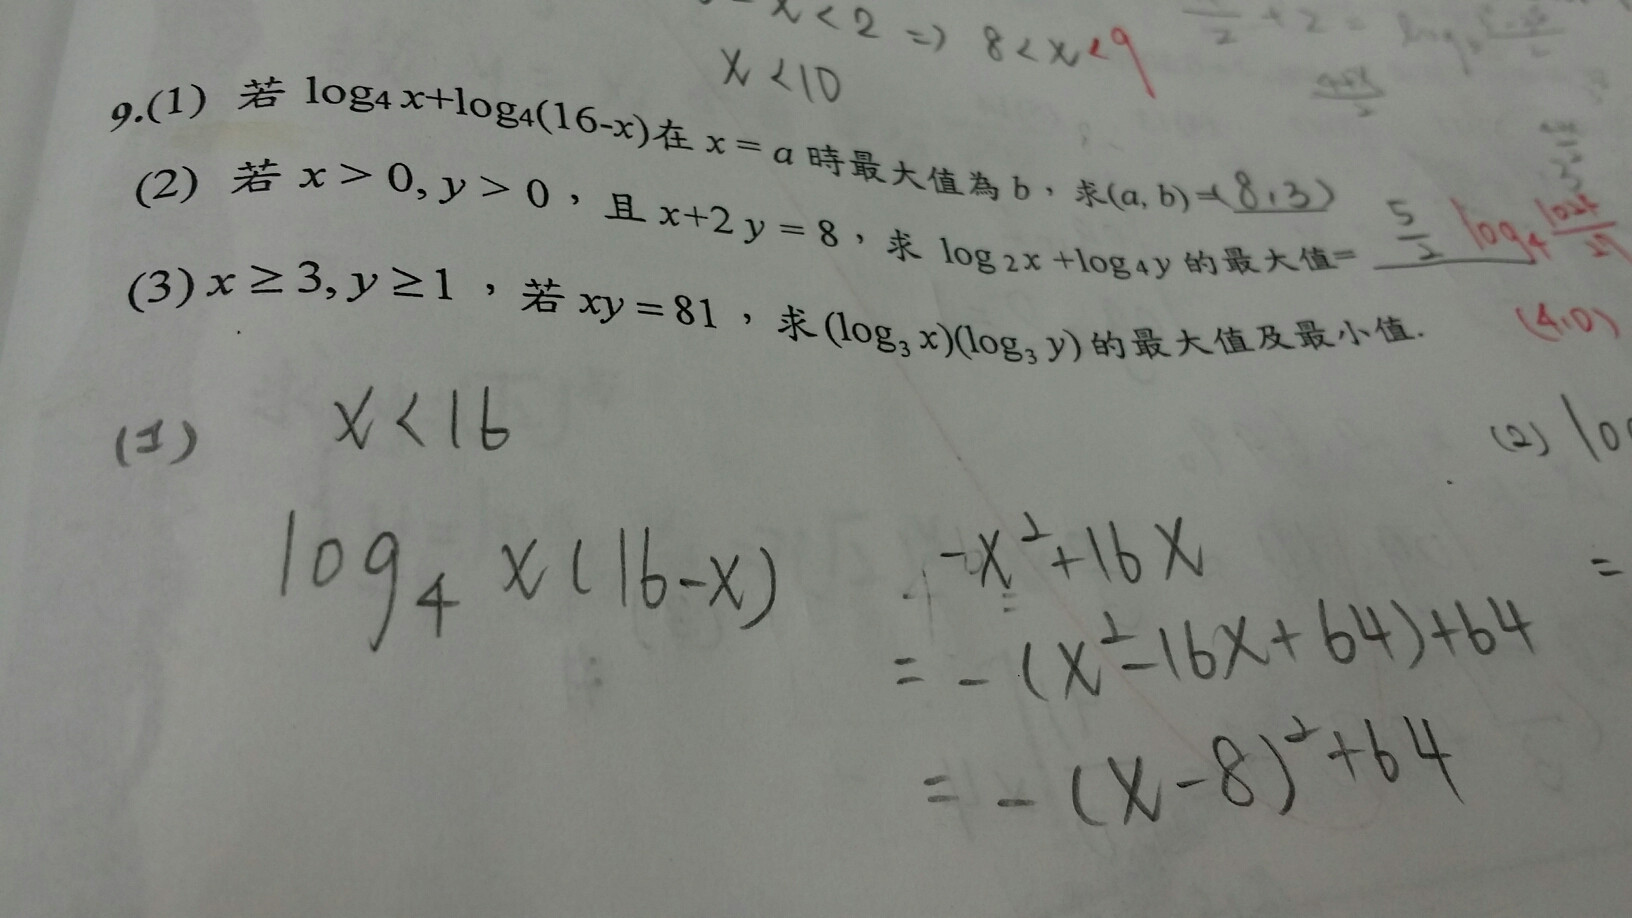 x<2 => 8<x<9
x<10
9.(1) 若 log₄ x+log₄(16-x)在 x = a 時最大值為 b,求(a, b)=(8,3)
(2) 若 x > 0, y > 0,且 x+2y = 8,求 log₂x +log₄y 的最大值= 5/2 log₄
(3) x ≥ 3, y ≥ 1,若 xy = 81,求(log₃ x)(log₃ y)的最大值及最小值.
(4,0)
(1) x<16
(2) lo
log₄ x(16-x)
-x²+16x
=
= -(x²-16x+64)+64
= -(x-8)²+64